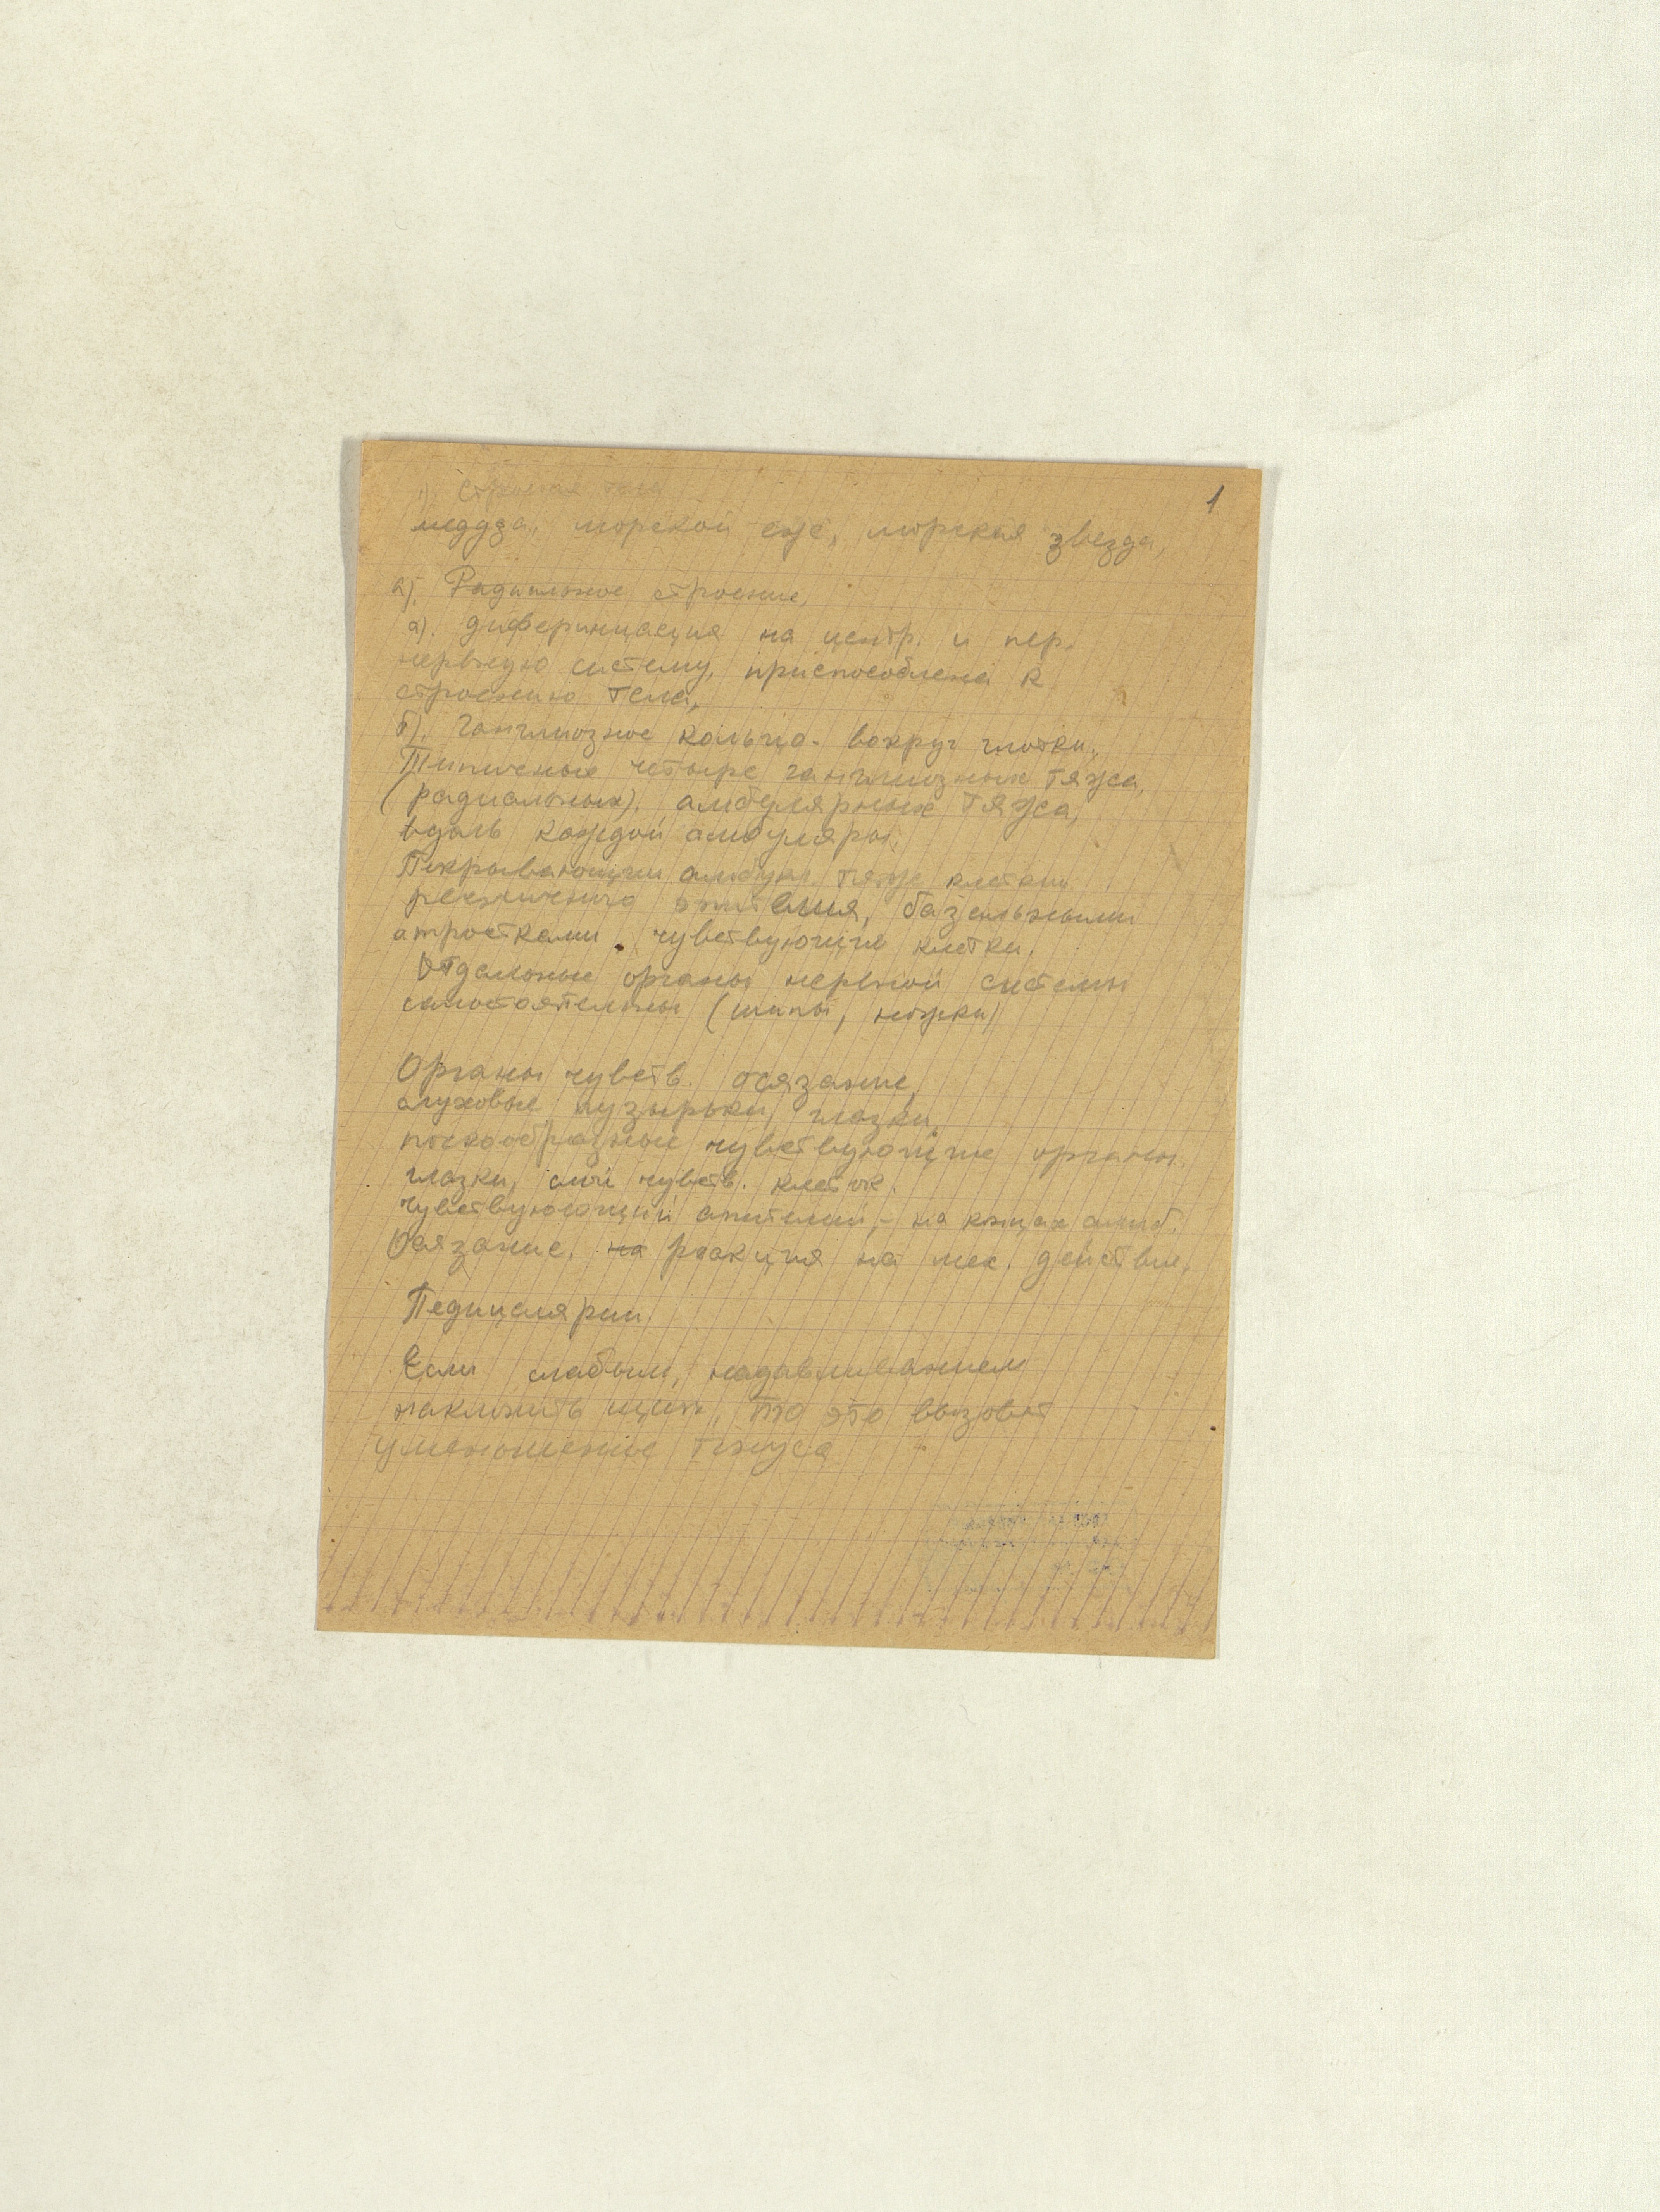 1
1). Строения тела
медуза, морской еж, морская звезда,
а). Радиальное строение,
а). диференцация на центр. и пер.
нервную систему, приспособлена к
строению тела,
б). Ганглиозное кольцо. вокруг глотки,
Типичных четыре ганглиозных тяжа,
(радиальных). амбулярных тяжа,
вдоль каждой амбуляры,
Покрывающии амбул. тяж клетки
эпителия, базальными
атростками. чувствующия клетки.
Отдельные органы нервной системы
самостоятельны (шипы, ножки)
Органы чувств. осязание,
слуховые пузырьки, глазки,
почкообразные чувствующие органы.
глазки, слой чувств. клеток.
чувствующий эпителий, - на концах амб.
Осязание. на реакция на мех. действие,
Педицелярии.
Если слабым, надавливанием
наклонить шип, то это вызовет
уменьшение тонуса